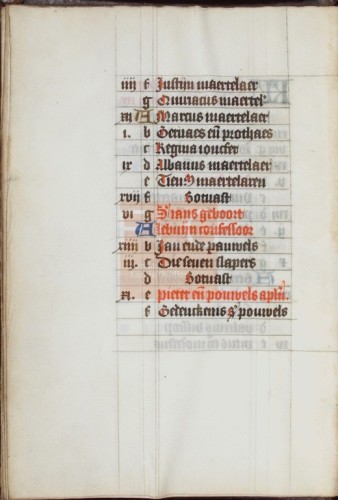 iiij f Justijn maertelaer
g Quiriacus maertel'
xij A Marcus maertelaer
i. b Geruaes en̄ prothaes
c Regina ioncfer
ix d Albanus maertelaer
e Tien M maertelaren
xvij f Sotuast
vi g S' Jans geboort
A Lebuijn confessoor
xiiij b Jan ende pauwels
iij. c Die seuen slapers
d Sotuast
xi. e Pieter en̄ pouwels apl'n.
f Gedenckenis s' pouwels